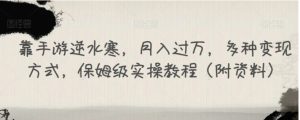 靠手游逆水寒，月入过万，多种变现
方式，保姆级实操教程（附资料）